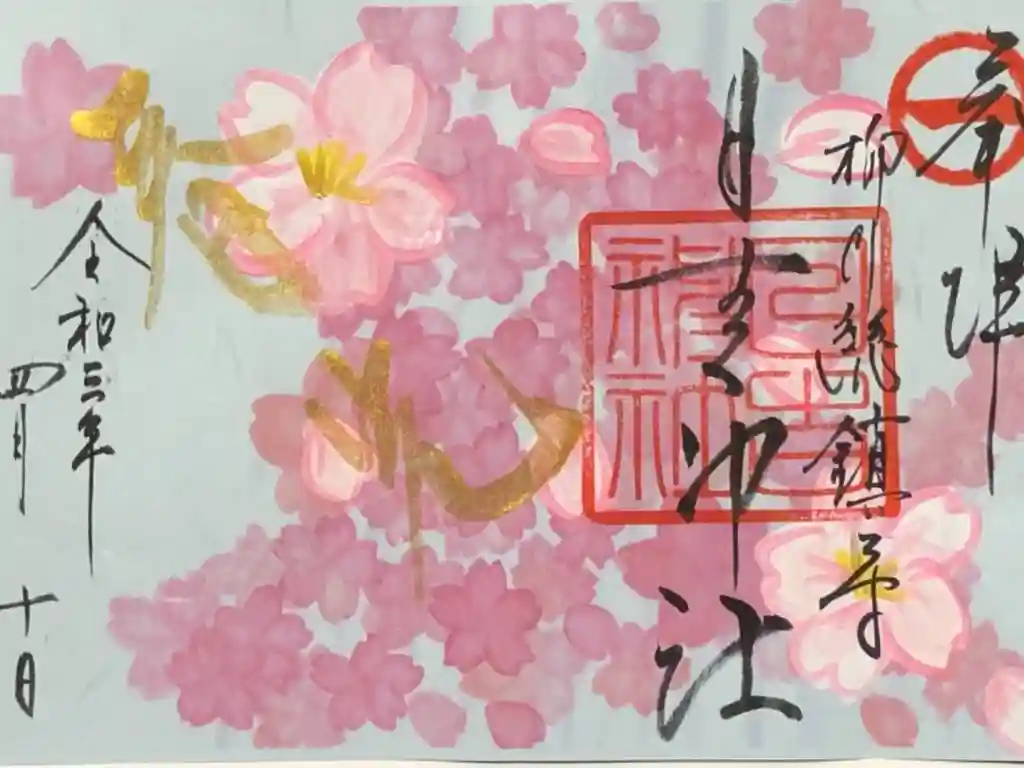 奉拝
柳川総鎮守
日吉神社
日吉
神社
令和三年
四月
十日